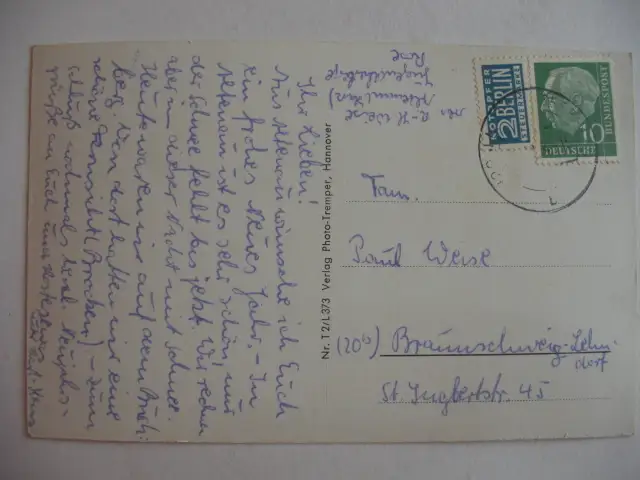 Ihr Lieben!
Aus Altenau wünsche ich Euch
ein frohes Neues Jahr. – In
Altenau ist es sehr schön, nur
der Schnee fehlt bis jetzt. Wir rechnen
aber in dieser Nacht mit Schnee.
Heute waren wir auf dem
berg. Von dort hatten wir eine
schöne Fernsicht (Brocken) – Zum
Schluß nochmals herzl. Neujahrs-
grüße an Euch
Abs.
K-H Weise
Altenau (Harz)
Jugendherberge
Fam.
Paul Weise
(20b) Braunschweig-Lehn-
dorf
St. Ingbertstr. 45
Nr. T 2/L373 Verlag Photo-Tremper, Hannover
NOTOPFER
2 BERLIN
STEUERMARKE
10
DEUTSCHE
BUNDESPOST